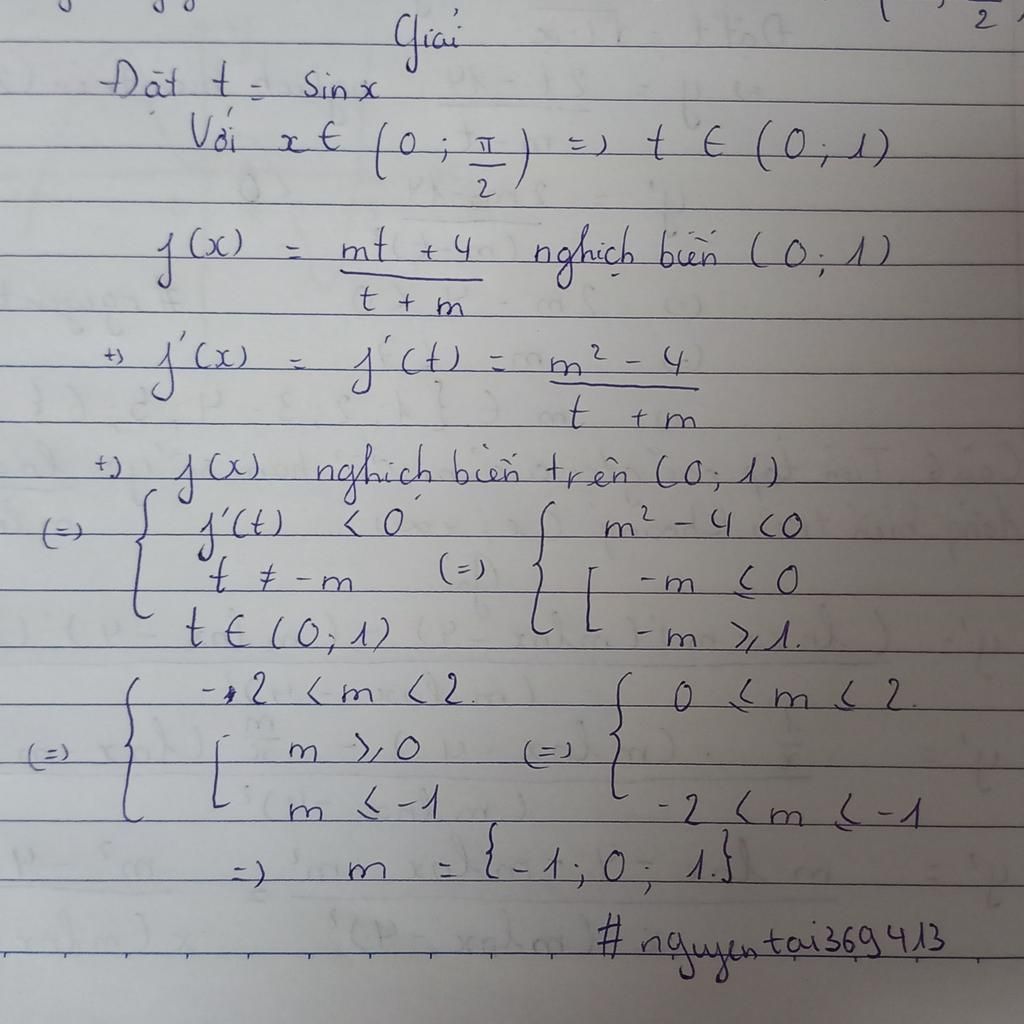 Giải
Đặt t = sinx
Với x ∈ (0; π/2) => t ∈ (0; 1)
f(x) = (mt + 4)/(t + m) nghịch biến (0; 1)
+) f'(x) = f'(t) = (m² - 4)/(t + m)
+) f(x) nghịch biến trên (0; 1)
(=) { f'(t) < 0 (=) { m² - 4 < 0
t ≠ -m [ -m ≤ 0
t ∈ (0; 1) -m ≥ 1.
(=) { -2 < m < 2. (=) { 0 ≤ m ≤ 2.
[ m ≥ 0
m ≤ -1 -2 < m ≤ -1
=) m = {-1; 0; 1.}
#nguyentai369413